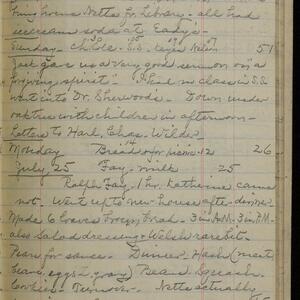 bring home Netta fr. Library - all had
icecream soda at Early's -
Sunday - Childs - S.S. 51
Jack gave us a very good sermon on "a
forgiving spirit" - in class in S.S.
went into Dr. Sherwood's. Down under
oaktree with children in afternoon -
Letters to Harl, Chas. Wilde
Monday Bread 14 for picnic 12 26
July, 25 Fay. milk 25
Ralph Fay, Katherine came
not. Went up to new house after dinner
Made 6 loaves Froggy Bread - 3 in A.M. 3 in P.M.
also salad dressing & Welsh rarebit -
Pears for sauce - Dinner Hash (meat
eggs - gravy) Beans Squash -
Cookies - Turnover - Netta actually